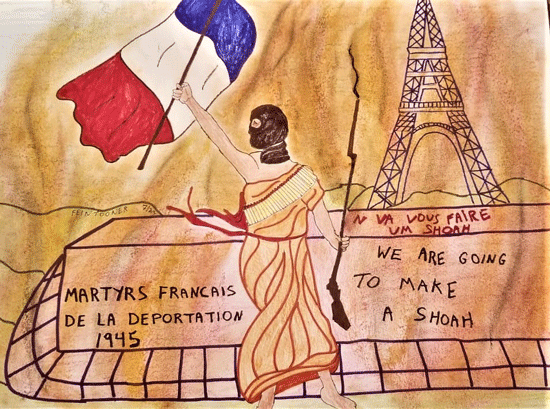 N VA VOUS FAIRE
UM SHOAH
WE ARE GOING
TO MAKE
A SHOAH
FEINTOONER
MARTYRS FRANCAIS
DE LA DEPORTATION
1945